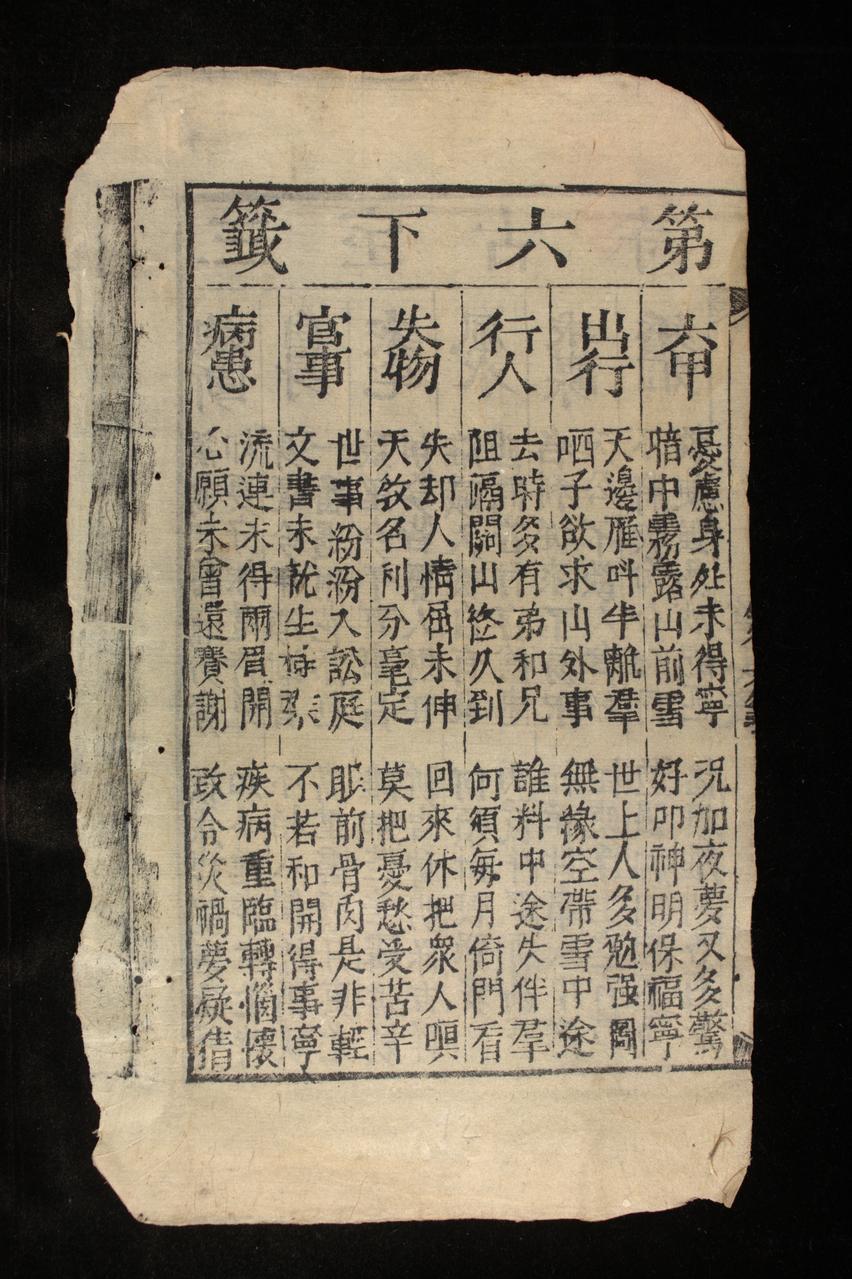 第六下籤
六甲
憂慮身处未得寧 况加夜夢又多驚
暗中霧露山前雪 好叩神明保福寧
出行
天邊雁叫半離羣 世上人多勉强圖
哂子欲求山外事 無緣空帶雪中途
行人
去時多有弟和兄 誰料中途失伴羣
阻隔關山终久到 何須每月倚門看
失物
失却人情屈未伸 回來休把衆人嗔
天教名利分毫定 莫把憂愁受苦辛
官事
世事紛紛入訟庭 眼前骨肉是非輕
文書未就生 不若和開得事寧
病患
流連未得兩眉開 疾病重臨轉惱懷
心願未曾還賽謝 致令災禍夢疑猜